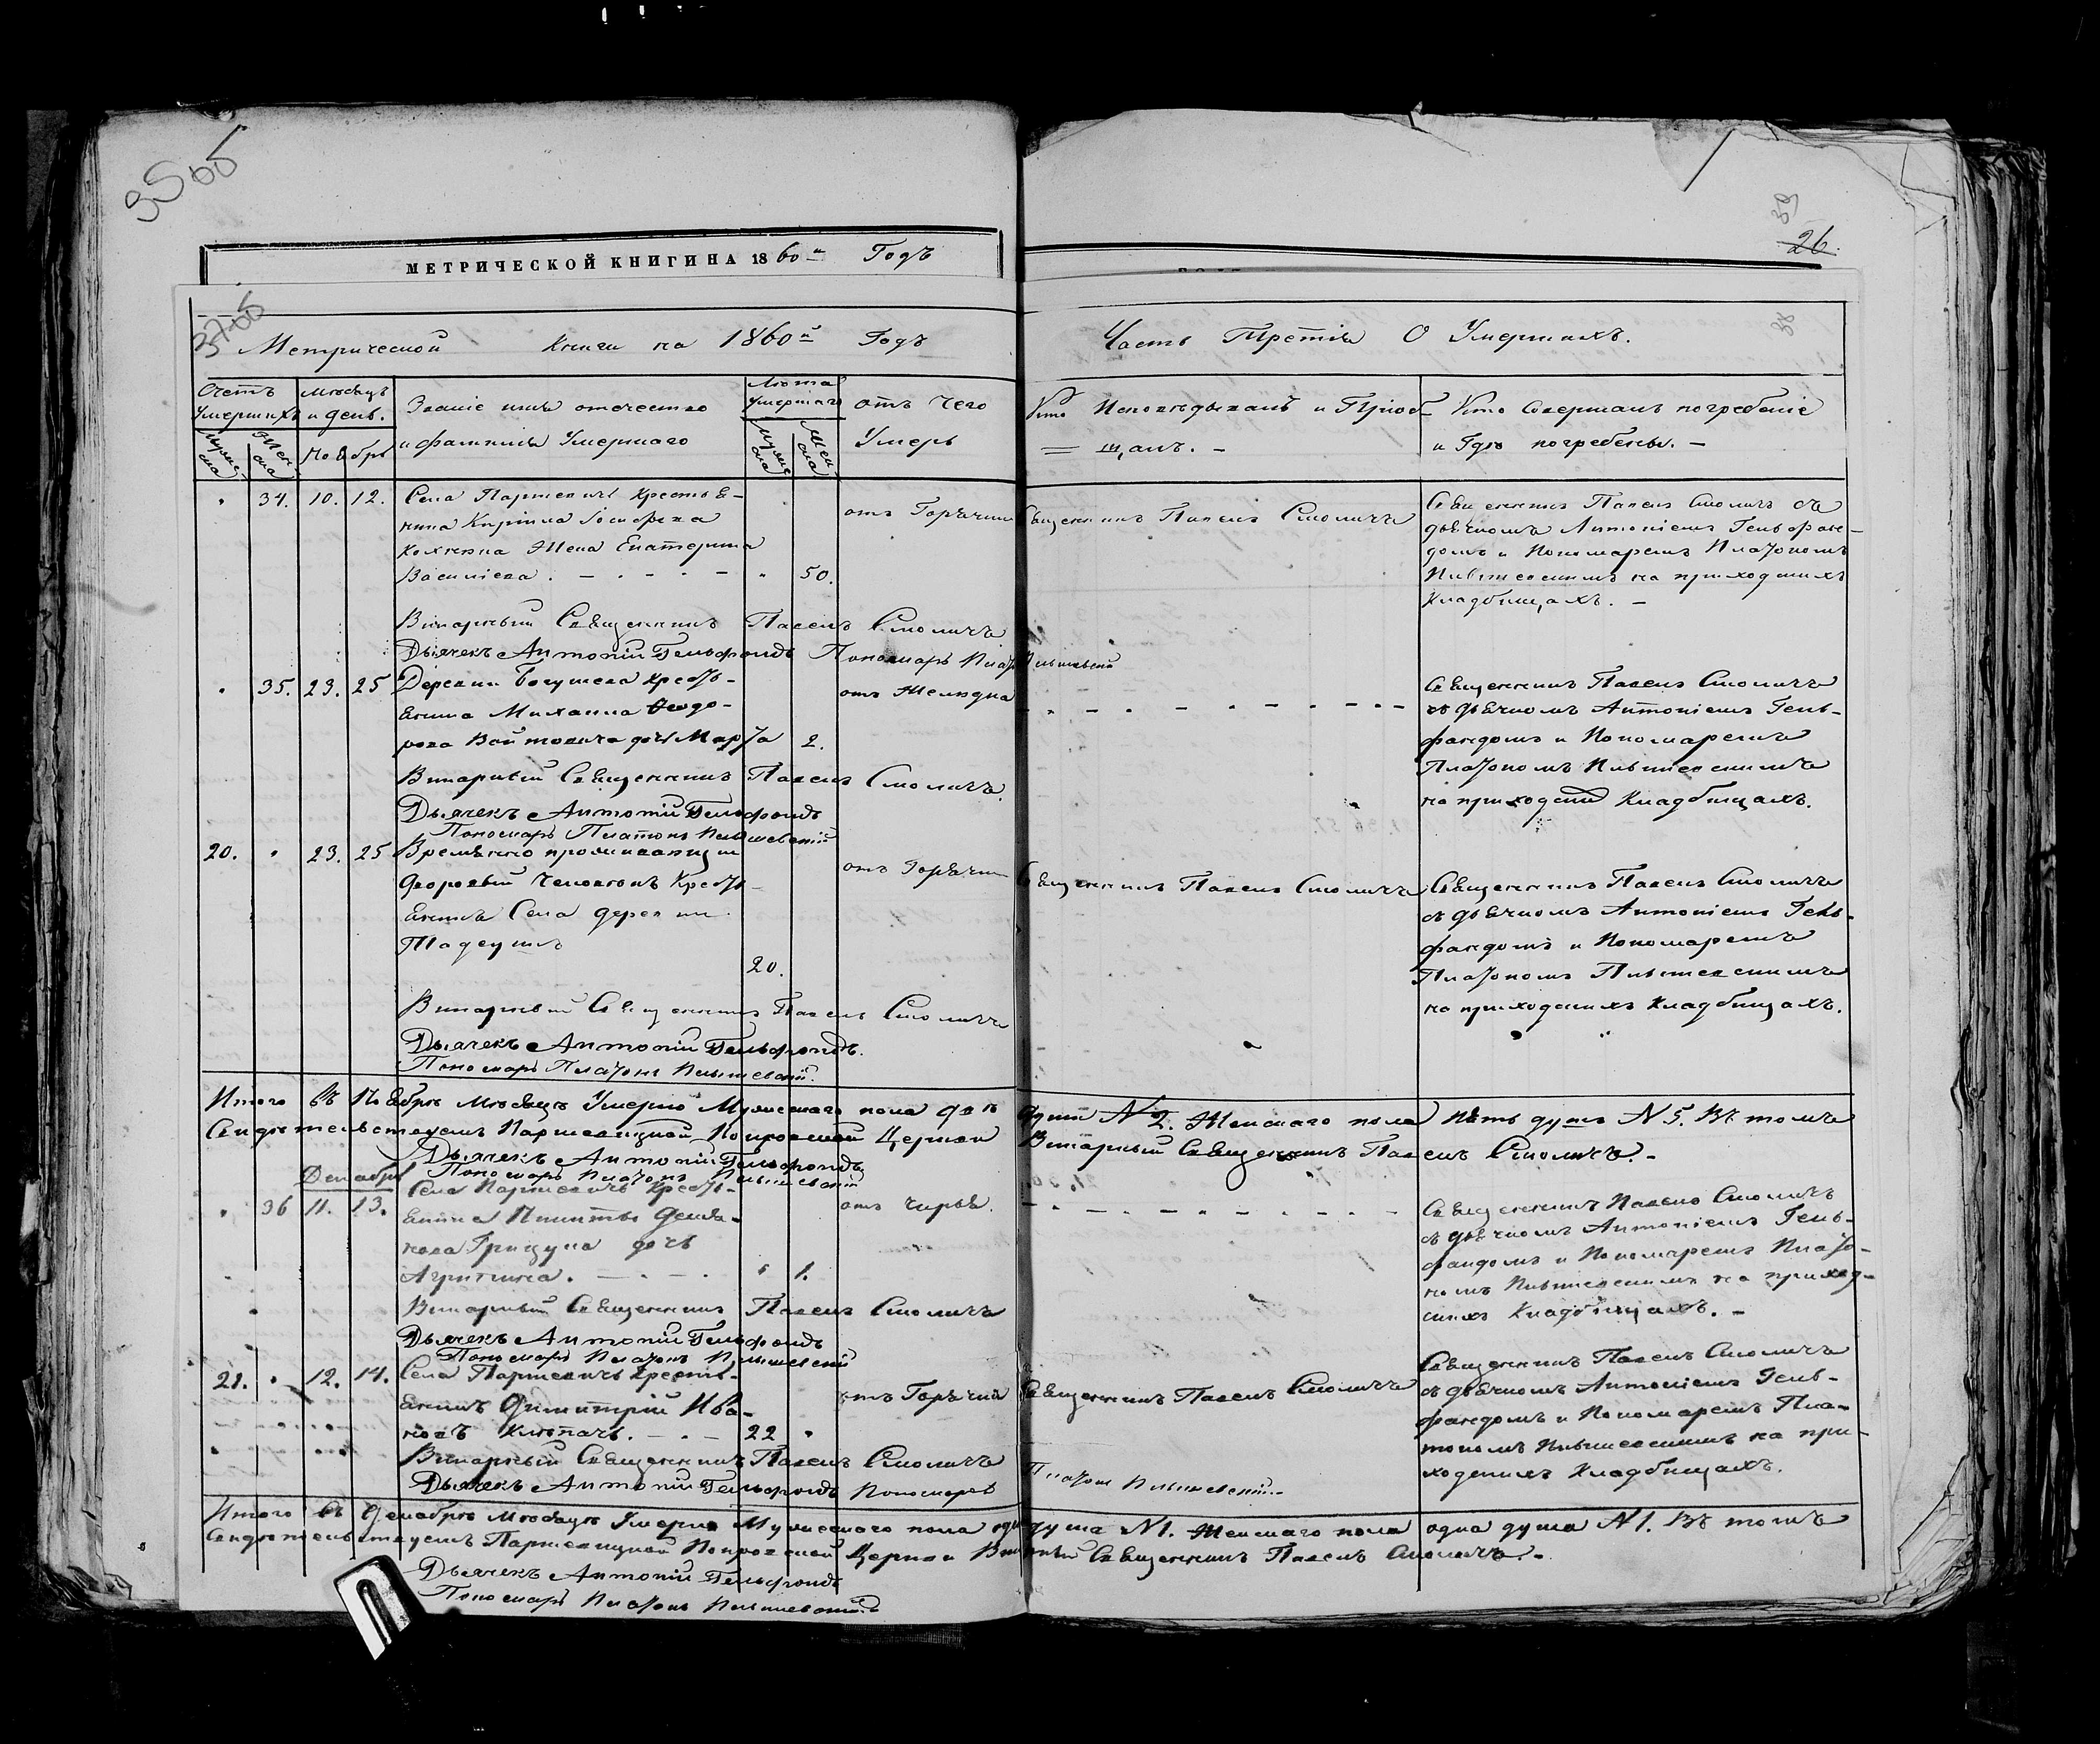 35об
МЕТРИЧЕСКОЙ КНИГИ НА 1860й Годъ
39
26.
37об
38
Метрической книги на 1860й Годъ
Часть Третія О Умершихъ.
Счетъ Умершихъ
Мѣсяцъ и день.
Званіе имя отечество
и фамилія Умершаго
Лѣта Умершаго
отъ Чего
Умеръ
Кто Исповѣдывалъ и Пріоб
щалъ. –
Кто Совершалъ погребеніе
и Гдѣ погребены. –
Ноябрь
34. 10. 12.
Села Паршевичъ Крестья-
нина Кирила
Жена Екатерина
Василіева. 50.
отъ Горячки
Священникъ Павелъ Смоличъ
Священникъ Павелъ Смоличъ съ
дьячкомъ Антоніемъ Гельфан-
домъ и Пономаремъ Платономъ
на приходскихъ
Кладбищахъ. –
Викарный Священникъ Павелъ Смоличъ
Дьячекъ Антоній Гельфондъ Пономарь
35. 23. 25
Деревни Богушева Кресть-
янина Михаила Ѳеодо-
рова Войтовича дочь Марѳа 2.
отъ Желудка
Священникъ Павелъ Смоличъ
съ дьячкомъ Антоніемъ Гель-
фандомъ и Пономаремъ
Платономъ
на приходскихъ Кладбищахъ.
Викарный Священникъ Павелъ Смоличъ.
Дьячекъ Антоній Гельфондъ
Пономарь Платонъ
20. 23. 25
Временно проживающій
дворовый человекъ Кресть-
Села
20.
отъ Горячки
Священникъ Павелъ Смоличъ
Священникъ Павелъ Смоличъ
съ дьячкомъ Антоніемъ Гель-
фандомъ и Пономаремъ
Платономъ
на приходскихъ Кладбищахъ.
Викарный Священникъ Павелъ Смоличъ
Дьячекъ Антоній Гельфондъ.
Пономарь Платонъ
Итого въ Ноябрѣ Мѣсяцѣ Умерло Мужескаго пола двѣ души N 2. Женскаго пола пять душъ N 5. Въ томъ
Свидѣтельствуемъ Паршевицкой Покровской Церкви Викарный Священникъ Павелъ Смоличъ. –
Дьячекъ Антоній Гельфондъ
Пономарь Платонъ
Декабрь
36 11. 13.
Села Паршевичъ Кресть-
янина Никиты
Грицука дочь
1.
отъ чирья.
Священникъ Павелъ Смоличъ
съ дьячкомъ Антоніемъ Гель-
фандомъ и Пономаремъ Плато-
номъ на приход-
скихъ Кладбищахъ. –
Викарный Священникъ Павелъ Смоличъ
Дьячекъ Антоній Гельфондъ
Пономарь Платонъ
21. 12. 14.
Села Паршевичъ Кресть-
янинъ Димитрій Ива-
новъ 22
отъ Горячки
Священникъ Павелъ Смоличъ
Священникъ Павелъ Смоличъ
съ дьячкомъ Антоніемъ Гель-
фандомъ и Пономаремъ Пла-
тономъ на при-
ходскихъ Кладбищахъ.
Викарный Священникъ Павелъ Смоличъ
Дьячекъ Антоній Гельфондъ Пономарь Платонъ
Итого въ Декабрѣ Мѣсяцѣ Умерло Мужескаго пола душа N 1. Женскаго пола одна душа N 1. Въ томъ
Свидѣтельствуемъ Паршевицкой Покровской Церкви Викарный Священникъ Павелъ Смоличъ. –
Дьячекъ Антоній Гельфондъ
Пономарь Платонъ